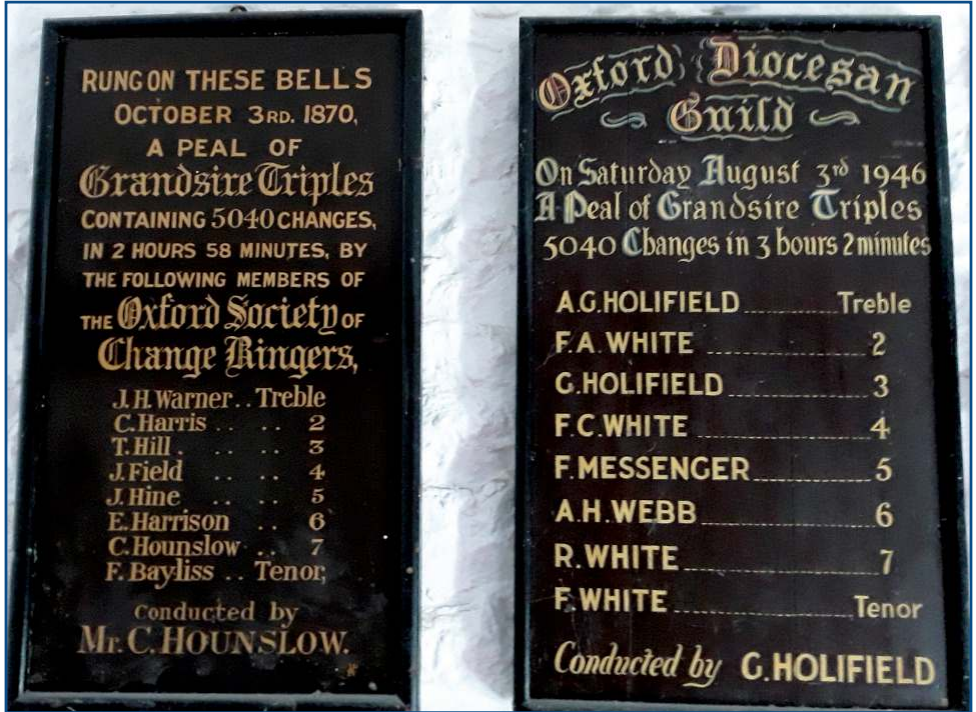 RUNG ON THESE BELLS
OCTOBER 3RD. 1870,
A PEAL OF
Grandsire Triples
CONTAINING 5040 CHANGES,
IN 2 HOURS 58 MINUTES, BY
THE FOLLOWING MEMBERS OF
THE Oxford Society OF
Change Ringers,
J.H. Warner .. Treble
C. Harris .. .. 2
T. Hill . .. .. 3
J. Field .. .. 4
J. Hine .. .. 5
E. Harrison .. 6
C. Hounslow .. 7
F. Bayliss .. Tenor,
Conducted by
Mr. C. HOUNSLOW.
Oxford Diocesan
Guild
On Saturday August 3rd 1946
A Peal of Grandsire Triples
5040 Changes in 3 hours 2 minutes
A.G. HOLIFIELD ............ Treble
F.A. WHITE ............ 2
G. HOLIFIELD ............ 3
F.C. WHITE ............ 4
F. MESSENGER ............ 5
A.H. WEBB ............ 6
R. WHITE ............ 7
F. WHITE ............ Tenor
Conducted by G. HOLIFIELD